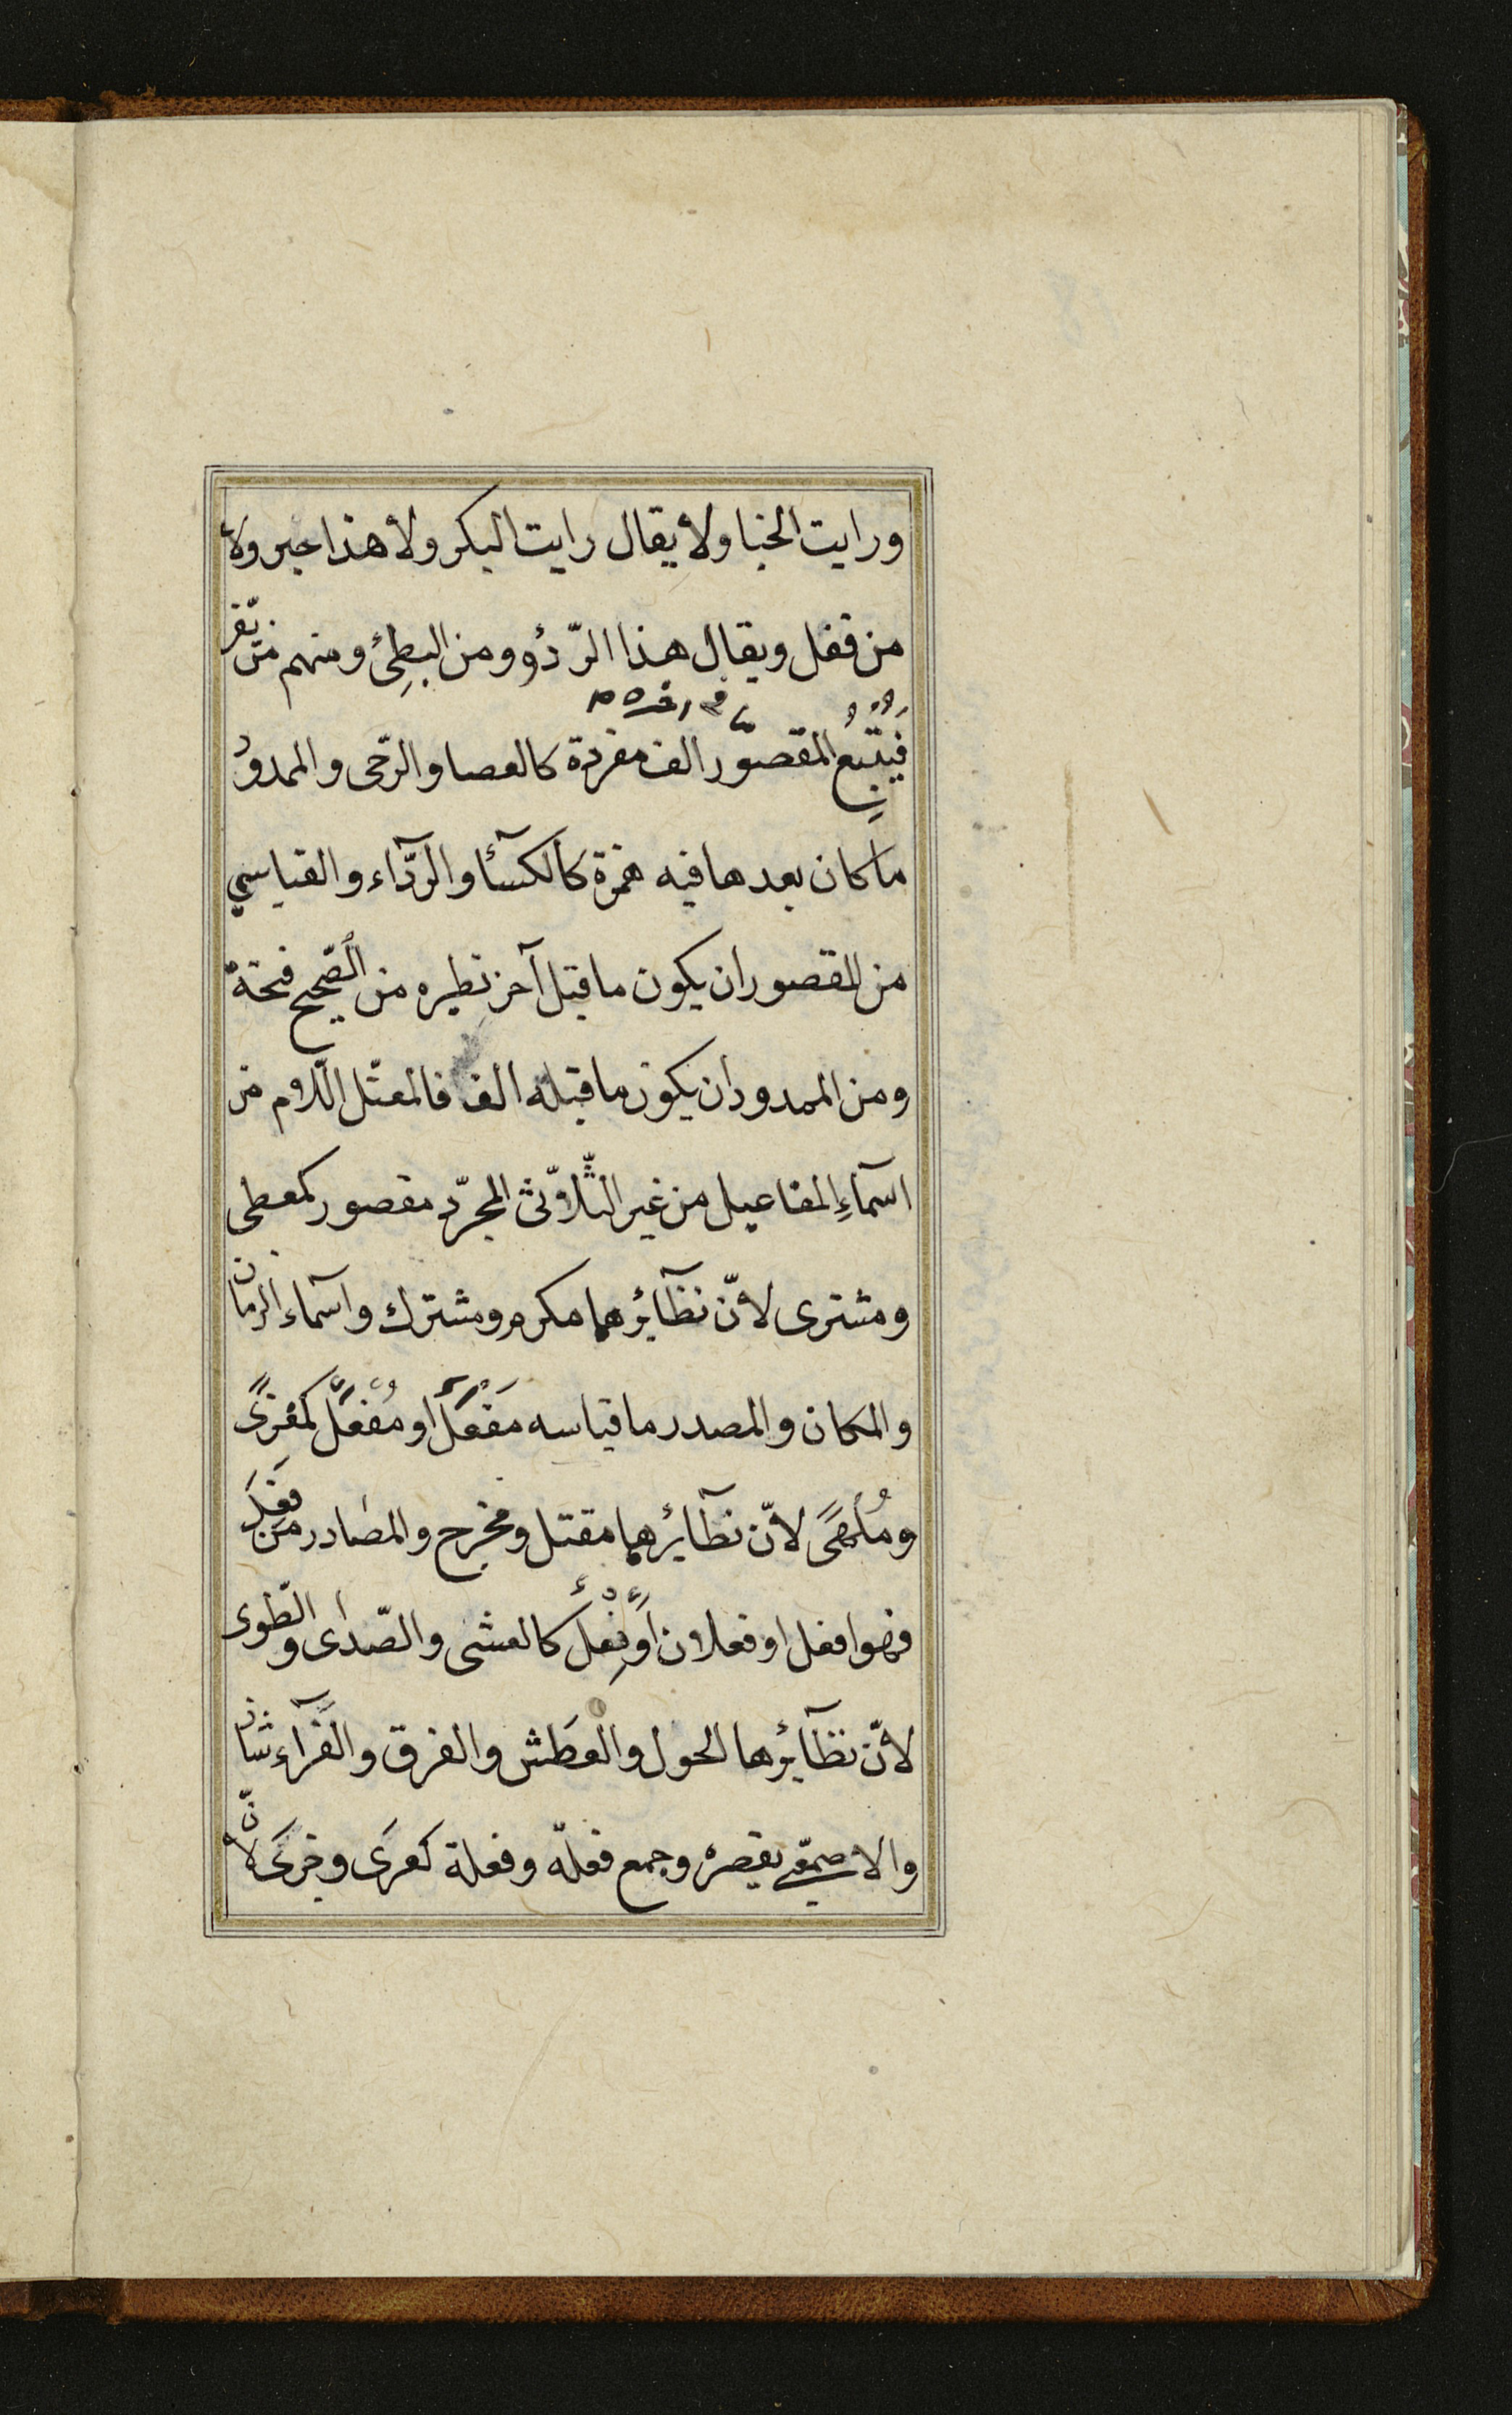 ورايت الخبا ولا يقال رايت البكر ولا هذا حبر ولا
من قفل ويقال هذا الرّدُؤ ومن البطِئ ومنهم من يّفر
فَيُتّبعُ المقصوّر الف مفردة كالعصا والرّحى والممدودُ
ما كان بعدها فيه همزة كالكسآئا والرّدآء والقياسي
من المقصور ان يكون ما قبل آخر نظيره من الصّحيح فتحة
ومن الممدود ان يكون ما قبله الف فالمعتّل اللّام من
اسمآءِ المفاعيل من غير الثّلاثّى المجرّد مقصور كمعطى
ومشترى لانّ نظآئرهما مكرم ومشترك واسمآء الزمان
والمكان والمصدر ما قياسه مَفعَلٌ او مُفعَلٌ كمغزىً
ومُلهىً لانّ نظآئرهما مقتل ومخرج والمصادر من فَعِلَ
فهو افعل او فعلان اَو فِعْلٌ كالعشى والصّدى والطّوى
لانّ نظآئرها الحول والعَطَش والفرق والغَرآء شاذ
والاصمعّى يقصره وجمع فعلة وفعلة كعرَى وجزىَ لانّ